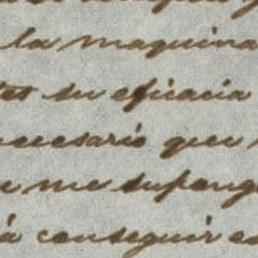 la maquina
su eficacia
necesario que
me supong
conseguir